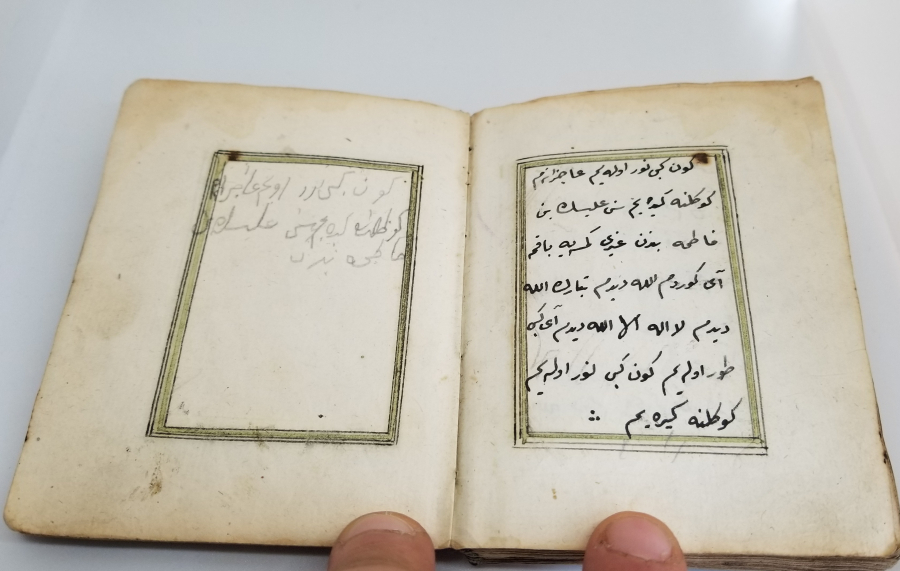 كون كبى نور اوله يم عاجزانم
كوكلنه كيره يم سن عليسك بن
فاطمه بندن غيرى كمسيه باقمه
آى كوردم الله ديدم تبارك الله
ديدم لا اله الا الله ديدم آى كبى
طور اوله يم كون كبى نور اوله يم
كوكلنه كيره يم
كون كبى
كوكلنه كيره يم سن عليسك بن
فاطمه بندن